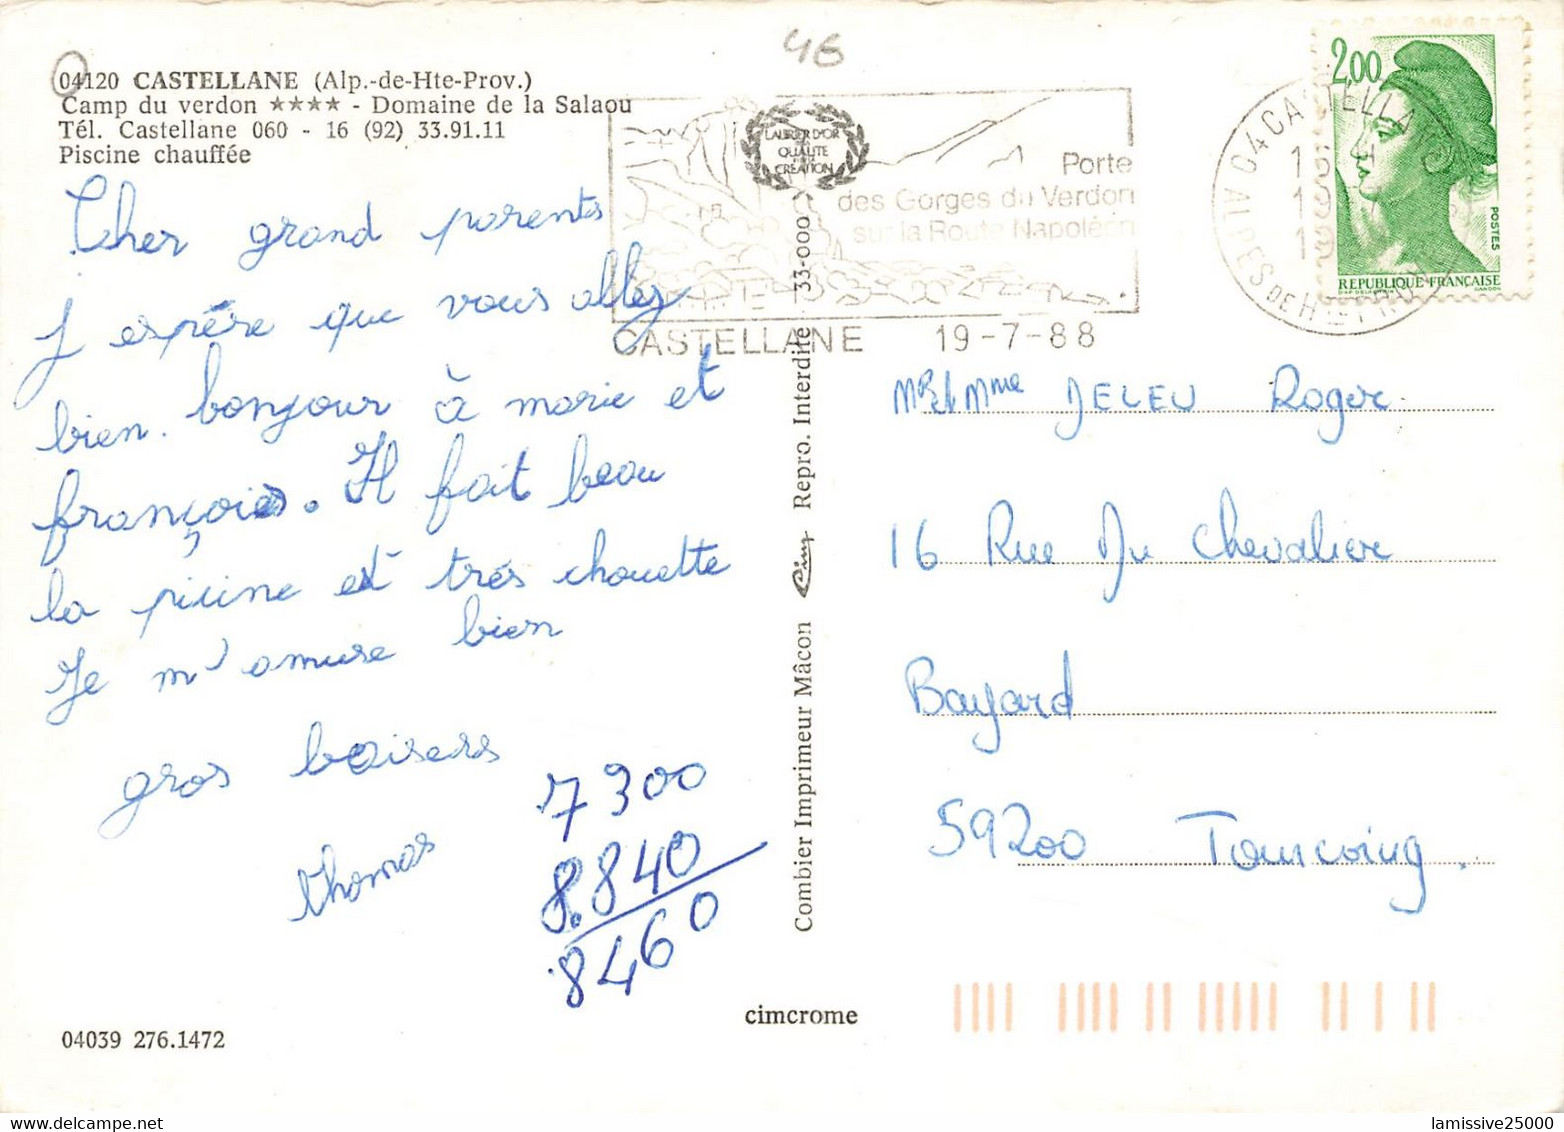 46
04120 CASTELLANE (Alp.-de-Hte-Prov.)
Camp du verdon ★★★★ - Domaine de la Salaou
Tél. Castellane 060 - 16 (92) 33.91.11
Piscine chauffée
Cher grand parents
j espére que vous allez
bien. bonjour à marie et
françois. Il fait beau
la picine est très chouette
Je m'amuse bien
gros baisers
thomas
7300
8.840
8460
04039 276.1472
cimcrome
Combier Imprimeur Mâcon Cim Repro. Interdite 33-000
LAURIER D'OR
QUALITE
CREATION
Porte
des Gorges du Verdon
sur la Route Napoléon
CASTELLANE 19-7-88
04 CASTELLANE
ALPES DE HTE PROV
2,00
POSTES
REPUBLIQUE FRANÇAISE
GANDON
MR et Mme DELEU Roger
16 Rue Du Chevalier
Bayard
59200 Tourcoing.
lamissive25000